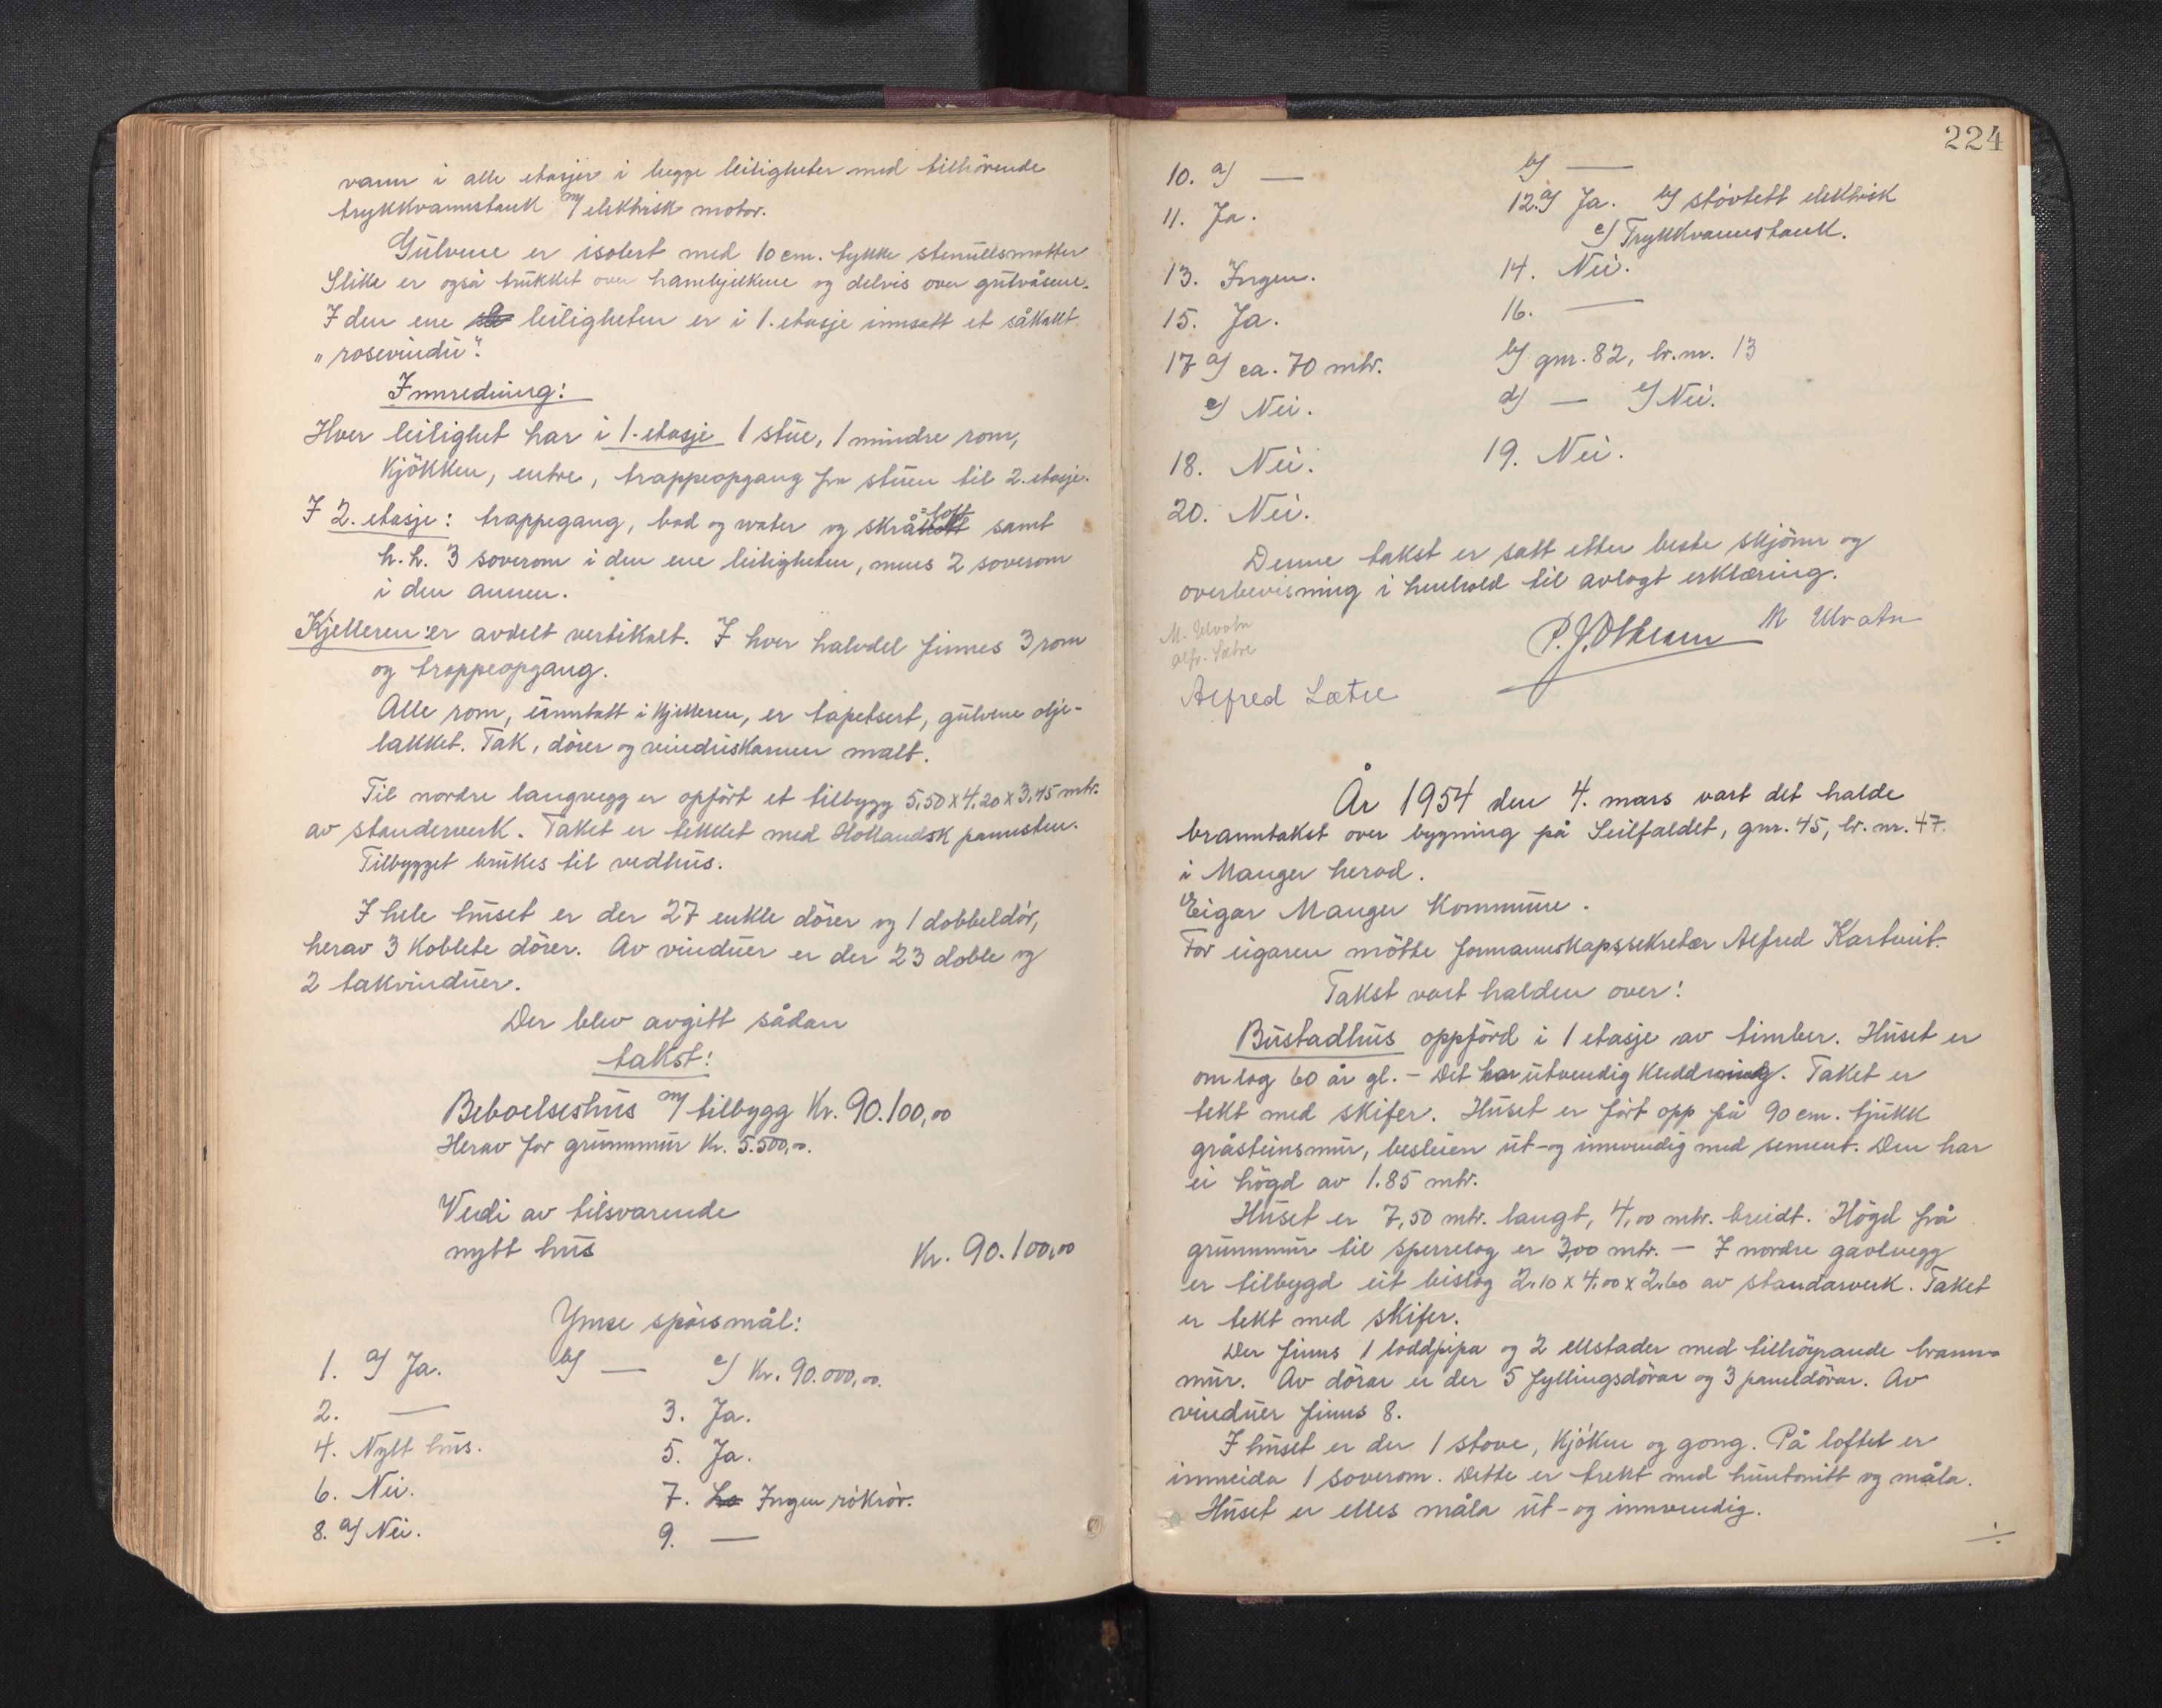 vann i alle etasjer i begge leiligheter med tilhörende
trykkvannstank m/ elektrisk motor.
Gulvene er isolert med 10 cm. tykke stenullsmatter
Slike er også trukket over hanebjelkene og delvis over gulvåsene.
I den ene leiligheten er i 1. etasje innsatt et såkalt
"rosevindu".
Innredning:
Hver leilighet har i 1. etasje 1 stue, 1 mindre rom,
kjökken, entre, trappeopgang fra stuen til 2. etasje.
I 2. etasje: trappegang, bad og water og skrå=loft samt
h.h. 3 soverom i den ene leiligheten, mens 2 soverom
i den annen.
Kjelleren: er avdelt vertikalt. I hver halvdel finnes 3 rom
og trappeopgang.
Alle rom, unntatt i kjelleren, er tapetsert, gulvene olje-
lakket. Tak, dörer og vinduskarmer malt.
Til nordre langvegg er opfört et tilbygg 5,50 x 4,20 x 3,45 mtr.
av standerverk. Taket er tekket med Hollandsk pannsten.
Tilbygget brukes til vedhus.
I hele huset er der 27 enkle dörer og 1 dobbeldör,
herav 3 koblete dörer. Av vinduer er der 23 doble og
2 takvinduer.
Der blev avgitt sådan
takst:
Beboelseshus m/ tilbygg Kr. 90.100,00
Herav for grunnmur Kr. 5.500,00.
Verdi av tilsvarende
nytt hus Kr. 90.100,00
Ymse spörsmål:
1. a/ Ja. b/ — c/ Kr. 90.000,00.
2. — 3. Ja.
4. Nytt hus. 5. Ja.
6. Nei. 7. Ingen rökrör.
8. a/ Nei. 9. —
224
10. a/ — b/ —
11. Ja. 12. a/ Ja. b/ stövtett elektrisk
c/ Trykkvannstank.
13. Ingen. 14. Nei.
15. Ja. 16. —
17 a/ ca. 70 mtr. b/ gnr. 82, br.nr. 13
c/ Nei. d/ — e/ Nei.
18. Nei. 19. Nei.
20. Nei.
Denne takst er satt etter beste skjönn og
overbevisning i henhold til avlagt erklæring.
M. Ulvatn
Alfr. Sætre
P. J. Othream M Ulvatn
Alfred Sætre
År 1954 den 4. mars vart det halde
branntakst over bygning på Seilfaldet, gnr. 45, br. nr. 47.
i Manger herad.
Eigar Manger Kommune.
For eigaren mötte formannskapssekretær Alfred Kartveit.
Takst vart halden over:
Bustadhus oppförd i 1 etasje av timber. Huset er
om lag 60 år gl. - Det har utvendig kledding. Taket er
tekt med skifer. Huset er fört opp på 90 cm. tjukk
gråsteinsmur, beslegen ut- og innvendig med sement. Den har
ei högd av 1.85 mtr.
Huset er 7,50 mtr. langt, 4,00 mtr. breidt. Högd frå
grunnmur til sperrelag er 3,00 mtr. — I nordre gavlvegg
er tilbygd eit bislag 2,10 x 4,00 x 2,60 av standarverk. Taket
er tekt med skifer.
Der finns 1 loddpipa og 2 eldstader med tilhöyrande brann-
mur. Av dörar er der 5 fyllingsdörar og 3 paneldörar. Av
vinduer finns 8.
I huset er der 1 stove, kjöken og gong. På loftet er
innreida 1 soverom. Dette er trekt med huntonitt og måla.
Huset er elles måla ut- og innvendig.